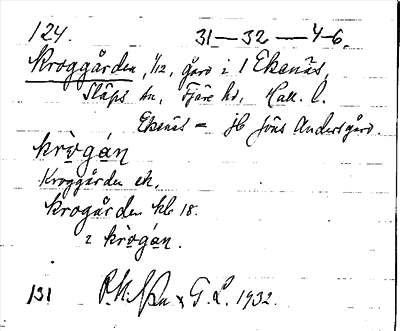 124. 31—32—4-6.
Kroggården, 1/12, gård i 1 Ekenäs,
Släps sn, Fjäre hd, Hall. l.
Ekenäs = jb Jöns Andersgård.
krògán
Kroggården ek.
Krogården kb 18.
2 krògán.
131 G. L. 1932.